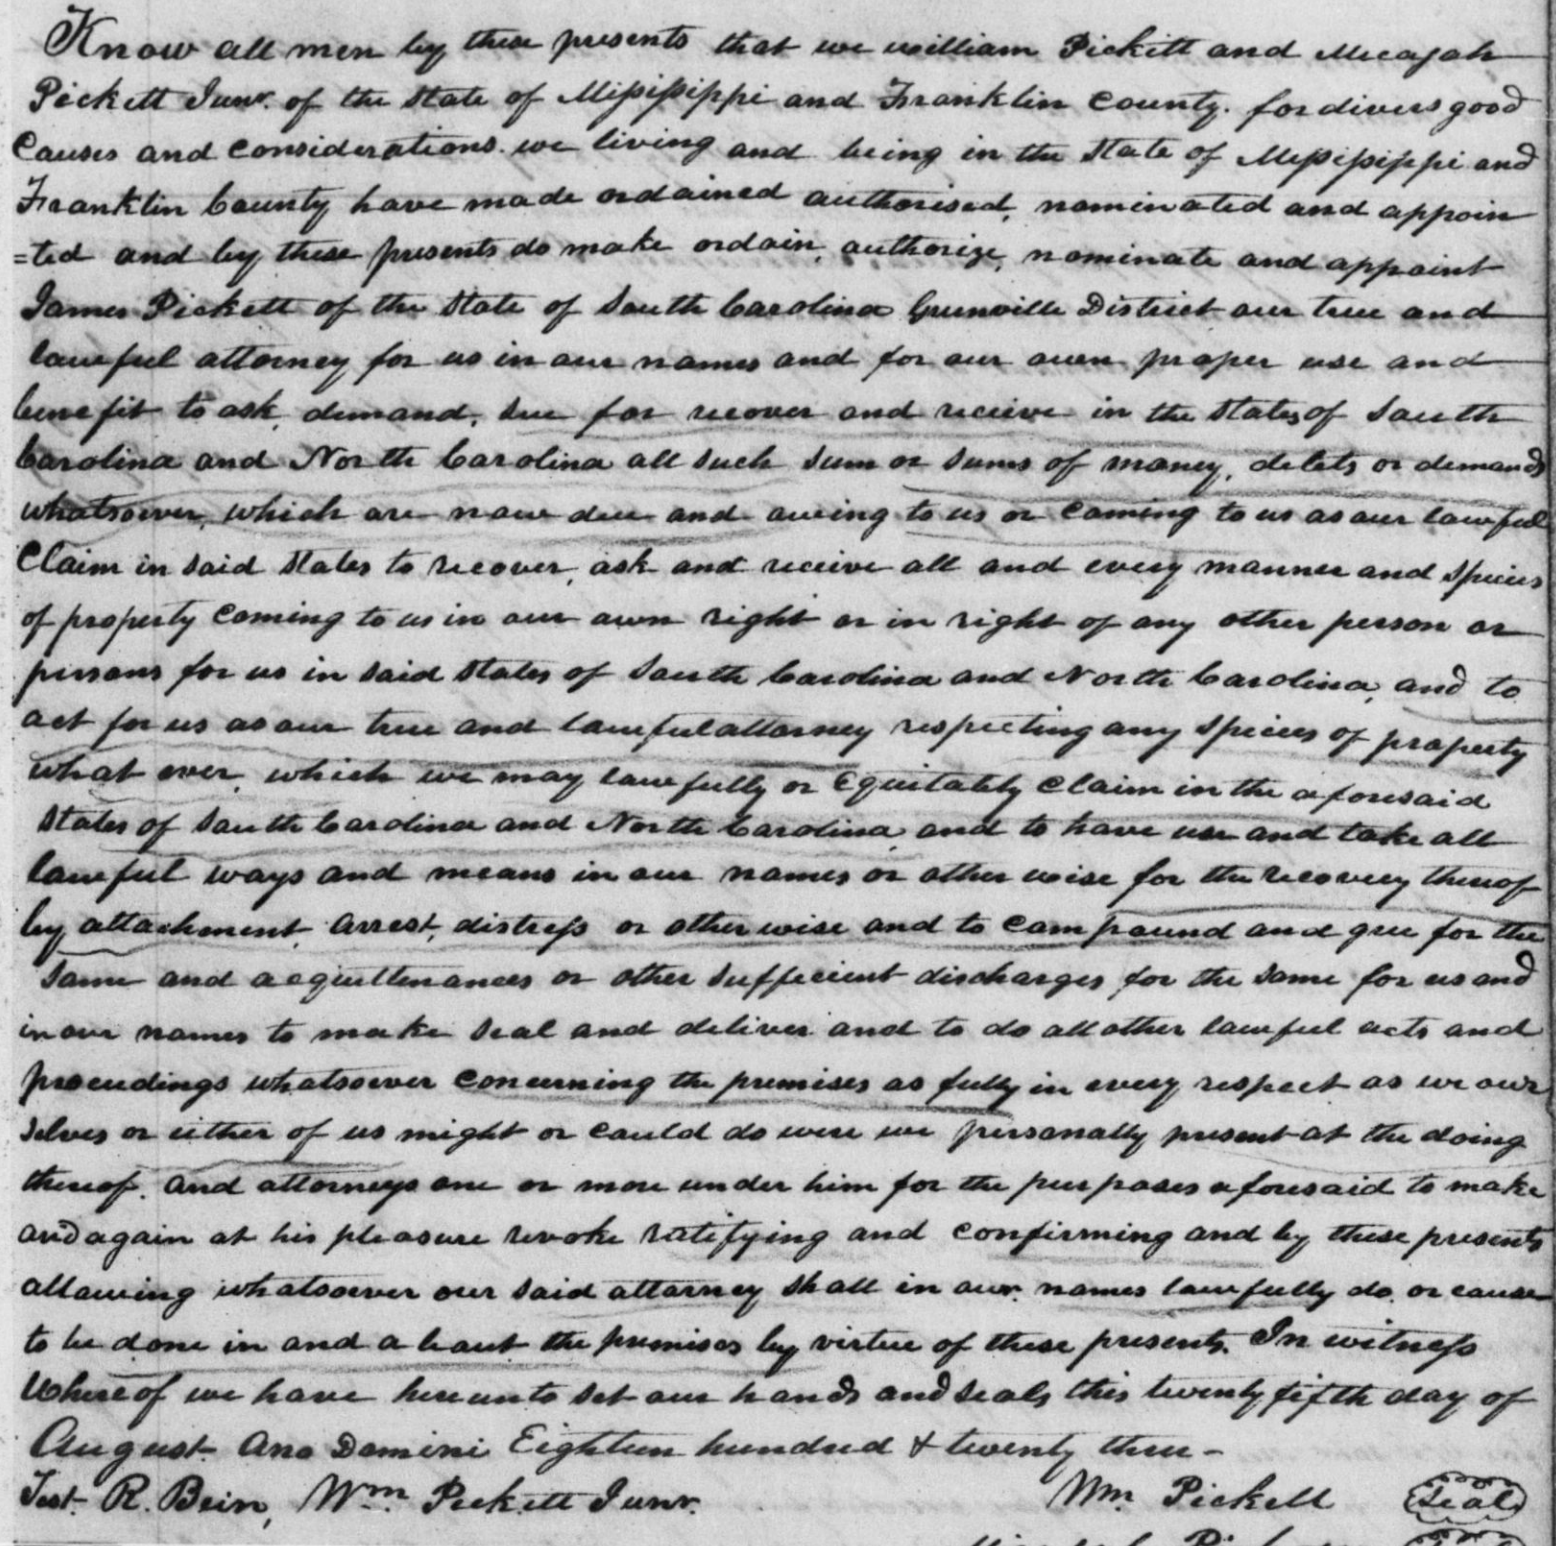 Know all men by these presents that we william Pickett and Micajah
Pickett Junr. of the State of Missisippi and Franklin County. for divers good
Causes and considerations we living and being in the State of Missisippi and
Franklin County have made ordained authorised, nominated and appoin
=ted and by these presents do make ordain, authorize, nominate and appoint
James Pickett of the State of South Carolina Greenville District our true and
lawful attorney for us in our names and for our own proper use and
benefit to ask, demand, sue for recover and receive in the States of South
Carolina and North Carolina all such sum or sums of money, debts or demands
whatsoever, which are now due and owing to us or coming to us as our lawful
Claim in said States to recover, ask and receive all and every manner and species
of property coming to us in our own right or in right of any other person or
persons for us in said States of South Carolina and North Carolina, and to
act for us as our true and lawful attorney respecting any species of property
what ever, which we may lawfully or Equitably claim in the aforesaid
States of South Carolina and North Carolina, and to have use and take all
lawful ways and means in our names or other wise for the recovery thereof
by attachment, arrest, distress or other wise and to compound and gree for the
same and acquittenances or other sufficient discharges for the same for us and
in our names to make seal and deliver and to do all other lawful acts and
proceedings whatsoever concerning the premises as fully in every respect as we our
selves or either of us might or could do were we personally present at the doing
thereof. and attorneys one or more under him for the purposes aforesaid to make
and again at his pleasure revoke ratifying and confirming and by these presents
allowing whatsoever our said attorney shall in our names lawfully do, or cause
to be done in and about the premises by virtue of these presents. In witness
Whereof we have hereunto set our hands and seals this twenty fifth day of
August Ano Domini Eighteen hundred & twenty three -
Test R. Bein, Wm. Pickett Junr. Wm. Pickett Seal